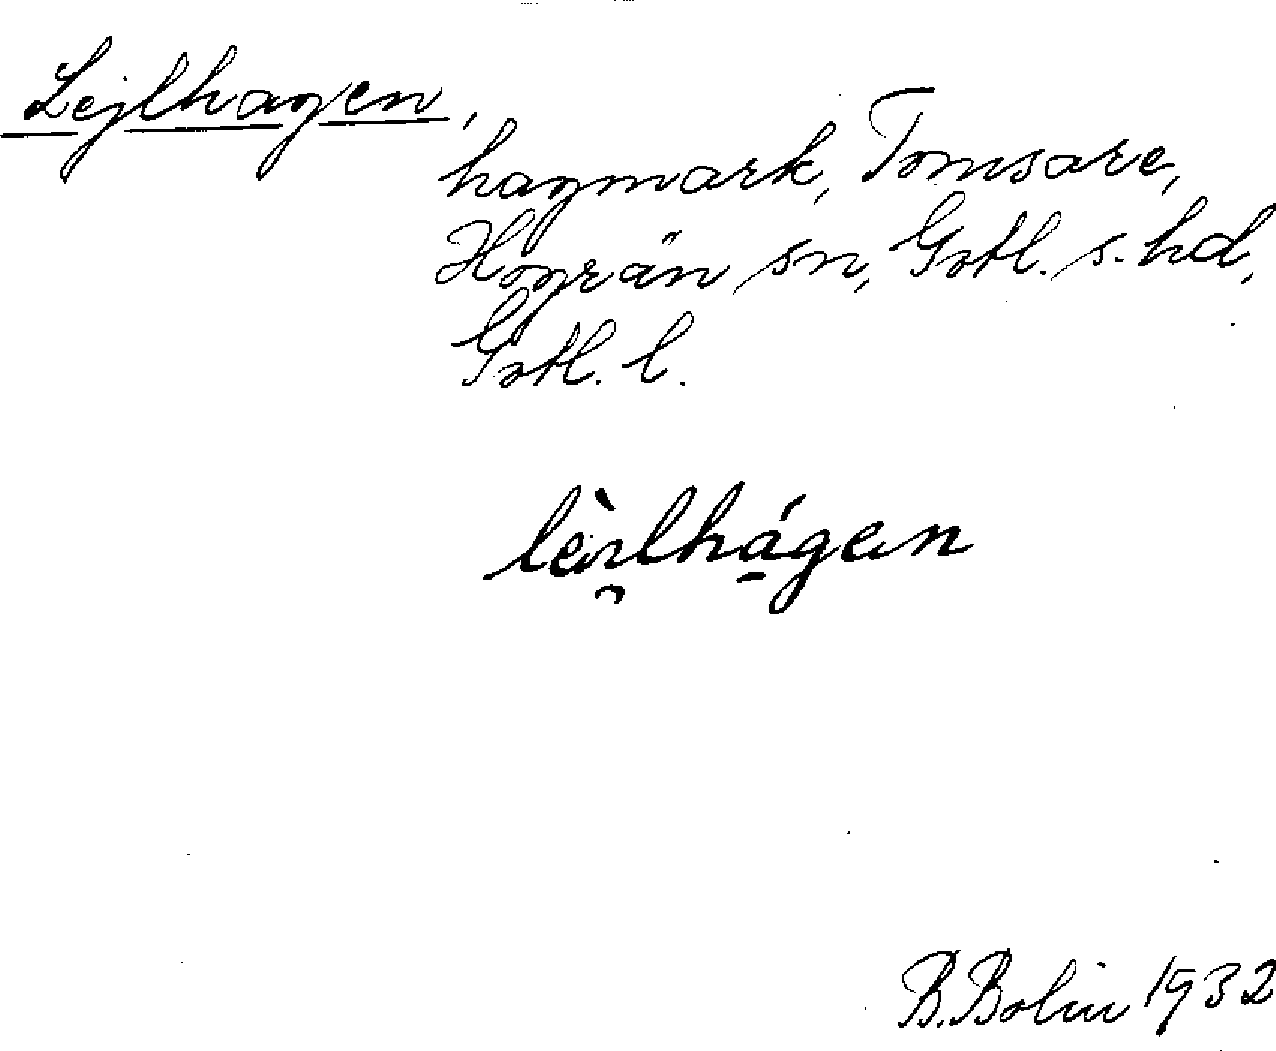 Lejlhagen,
hagmark, Tomsare,
Hogrän sn, Gotl. s. hd,
Gotl. l.
B. Bolin 1932